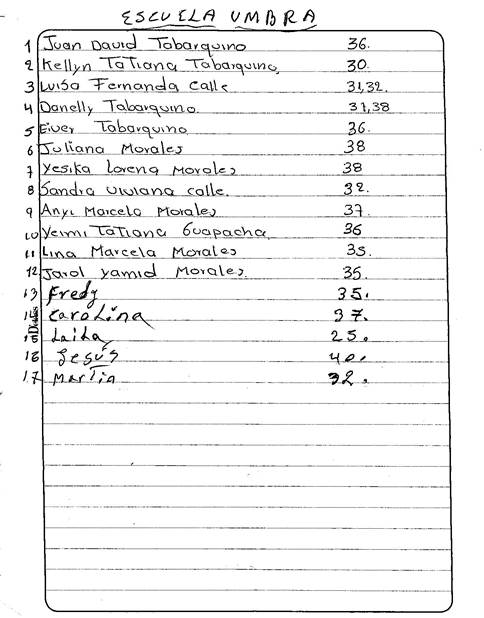 ESCUELA UMBRA
1 Juan David Tabarquino 36.
2 Kellyn Tatiana Tabarquino, 30.
3 Luisa Fernanda Calle 31,32.
4 Danelly Tabarquino. 37,38
5 Eiver Tabarquino 36.
6 Juliana Morales 38
7 Yesika Lorena Morales 38
8 Sandra Viviana calle. 32.
9 Anyi Marcela Morales 37.
10 Yeimi Tatiana Guapacha 36
11 Lina Marcela Morales 35.
12 Jarol Yamid Morales. 35.
13 Fredy 35.
14 Carolina 37.
15 Laila 25.
16 Jesús 40.
17 Martin 32.